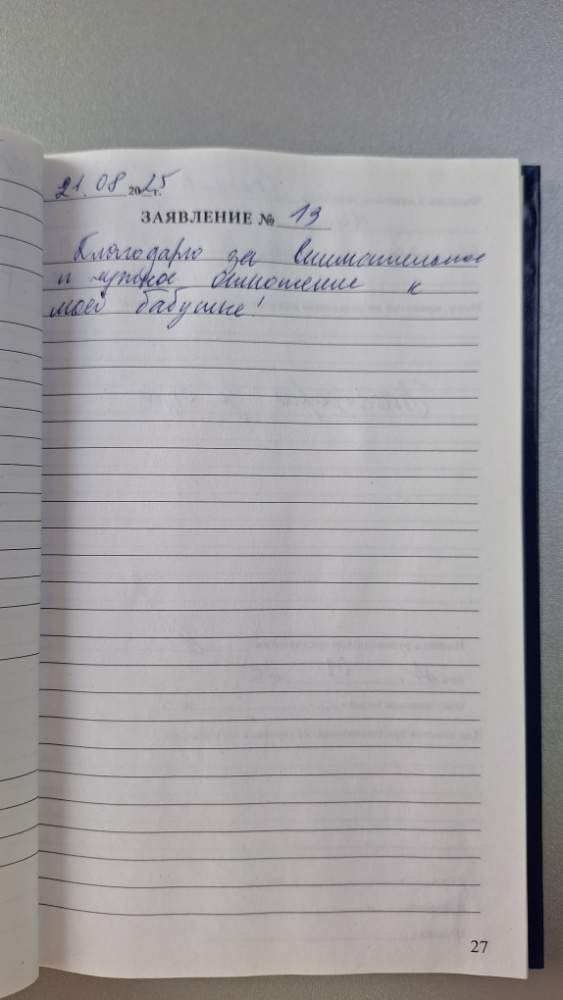 21.08 2025 г.
ЗАЯВЛЕНИЕ № 13
Благодарю за внимательное
и чуткое отношение к
моей бабушке!
27